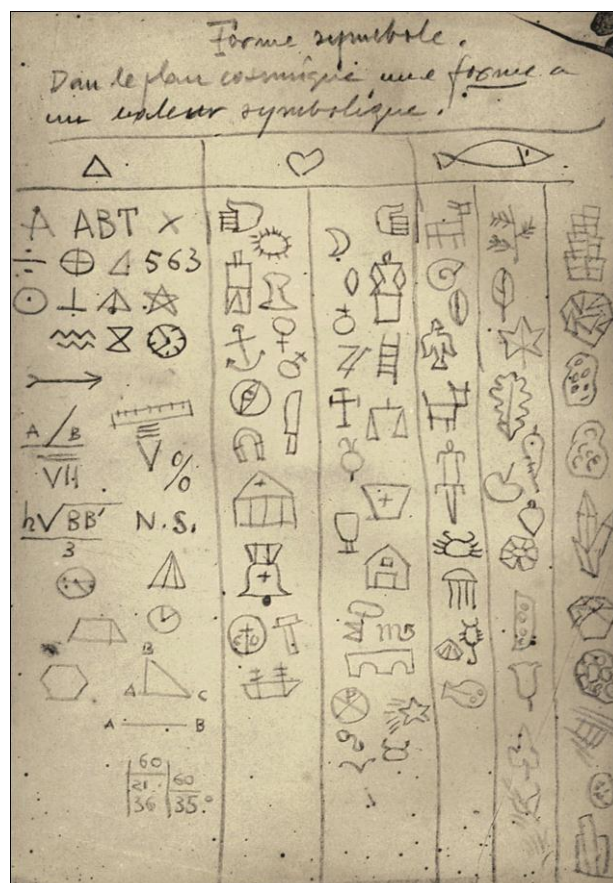 Forme symbole.
Dan le plan cosmique une forme a
un valeur symbolique.
A ABT ×
÷ 563
A / B
VH %
h√BB' N.S.
3
B
A C
A B
60
36 60
35.°